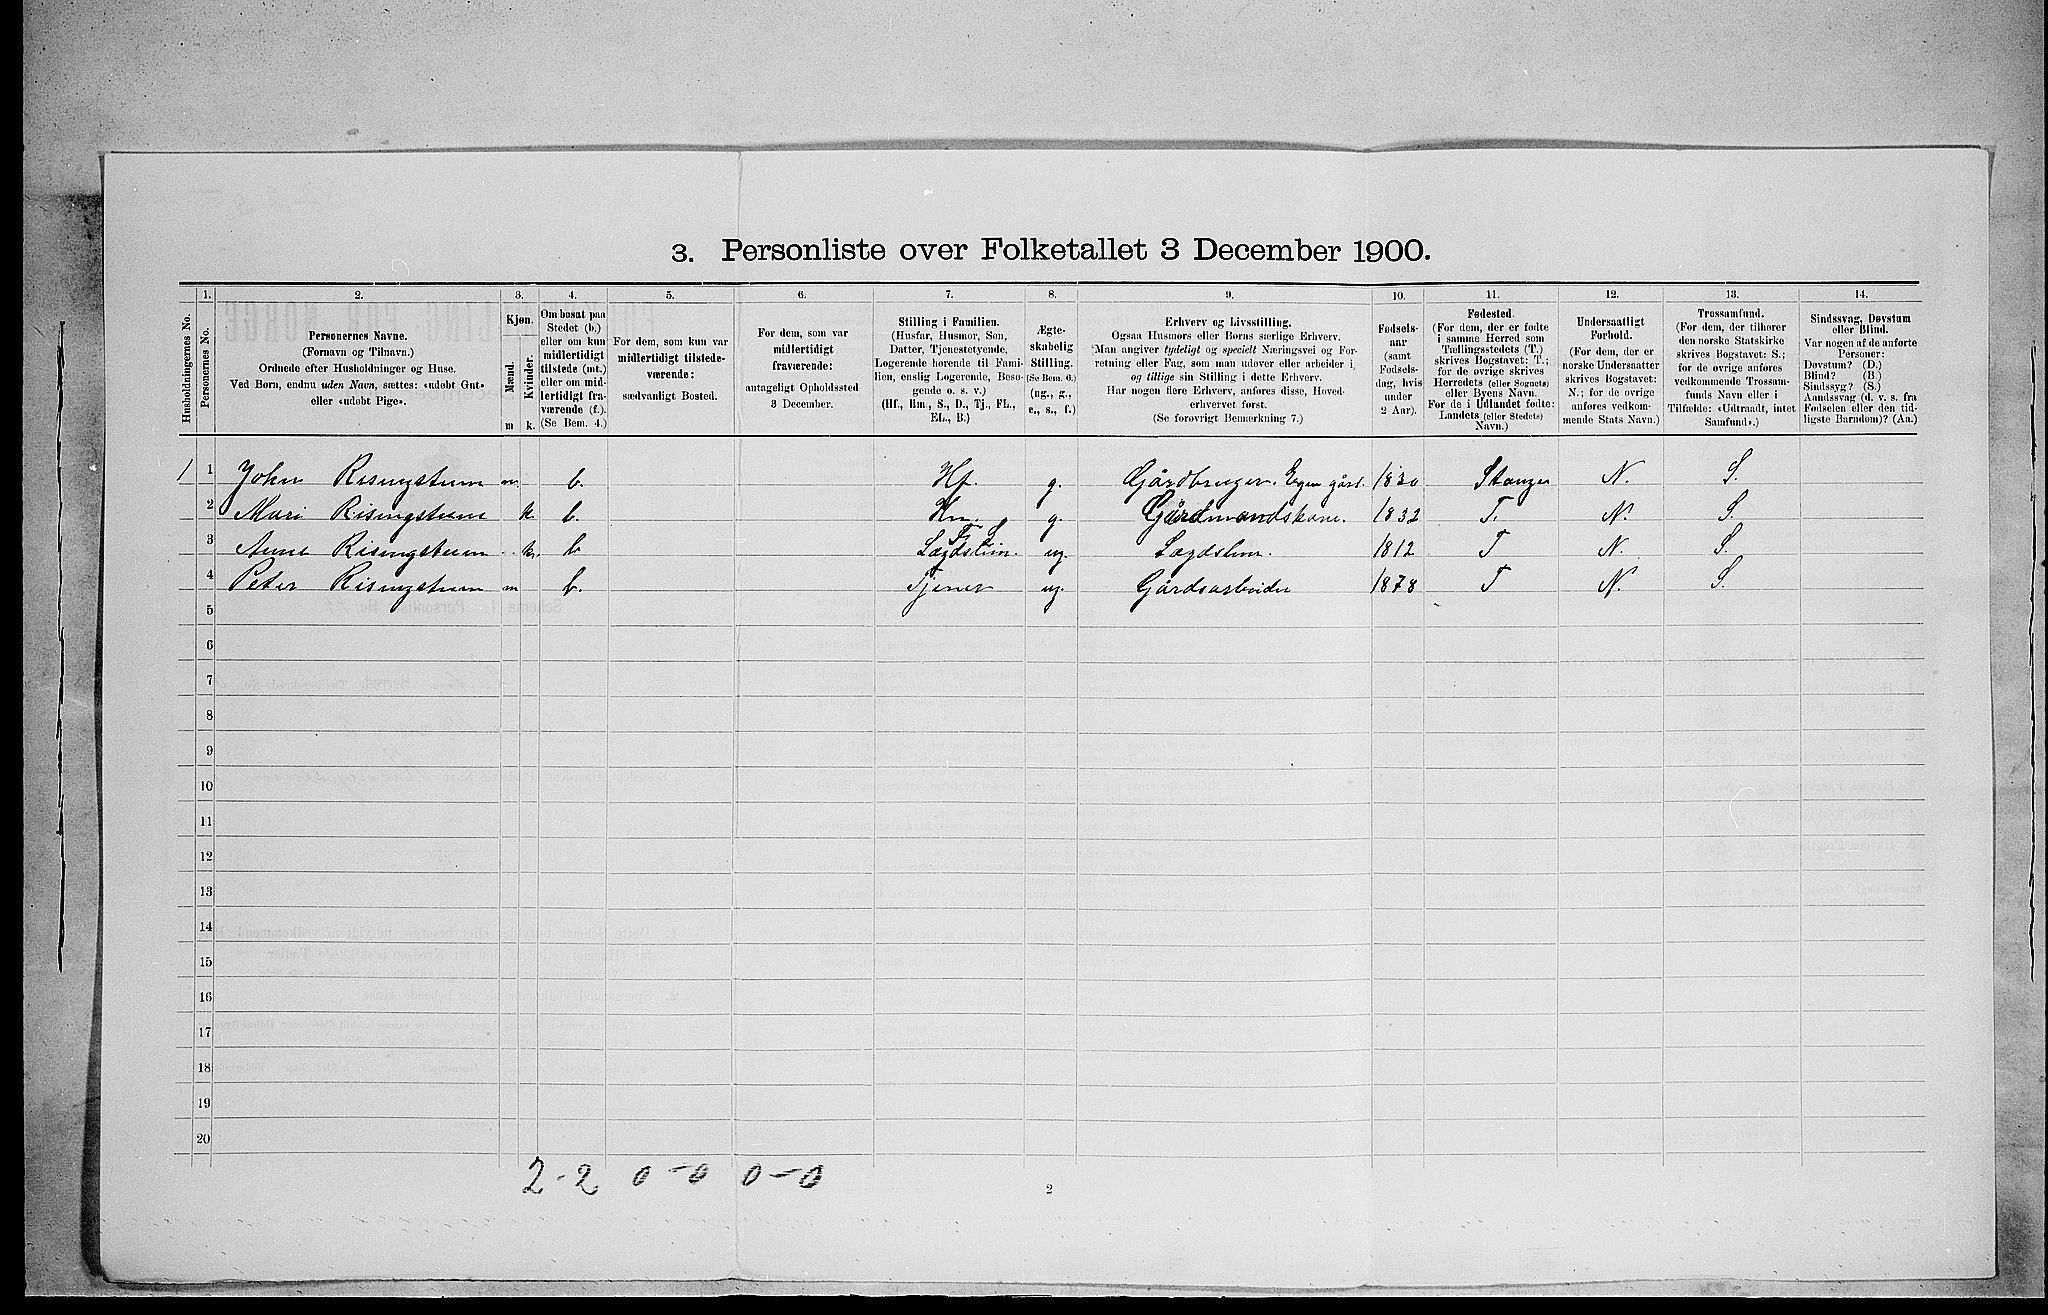 3. Personliste over Folketallet 3 December 1900.
1. 2. 3. 4. 5. 6. 7. 8. 9. 10. 11. 12. 13. 14.
Husholdningernes No.
Personernes No.
Personernes Navne.
(Fornavn og Tilnavn.)
Ordnede efter Husholdninger og Huse.
Ved Børn, endnu uden Navn, sættes: «udøbt Gut»
eller «udøbt Pige».
Kjøn.
Mænd.
Kvinder.
m k.
Om bosat paa
Stedet (b.)
eller om kun
midlertidigt
tilstede (mt.)
eller om mid-
lertidigt fra-
værende (f.).
(Se Bem. 4.)
For dem, som kun var
midlertidigt tilstede-
værende:
sædvanligt Bosted.
For dem, som var
midlertidigt
fraværende:
antageligt Opholdssted
3 December.
Stilling i Familien.
(Husfar, Husmor, Søn,
Datter, Tjenestetyende,
Logerende hørende til Fami-
lien, enslig Logerende, Besø-
gende o. s. v.)
(Hf., Hm., S., D., Tj., FL.,
EL., B.)
Ægte-
skabelig
Stilling.
(Se Bem. 6.)
(ug., g.,
e., s., f.)
Erhverv og Livsstilling.
Ogsaa Husmors eller Børns særlige Erhverv.
Man angiver tydeligt og specielt Næringsvei og For-
retning eller Fag, som man udøver eller arbeider i,
og tillige sin Stilling i dette Erhverv.
Har nogen flere Erhverv, anføres disse, Hoved-
erhvervet først.
(Se forøvrigt Bemærkning 7.)
Fødsels-
aar
(samt
Fødsels-
dag, hvis
under
2 Aar).
Fødested.
(For dem, der er fødte
i samme Herred som
Tællingsstedets (T.)
skrives Bogstavet: T.;
for de øvrige skrives
Herredets (eller Sognets)
eller Byens Navn.
For de i Udlandet fødte:
Landets (eller Stedets)
Navn.)
Undersaatligt
Forhold.
(For dem, der er
norske Undersaatter
skrives Bogstavet:
N.; for de øvrige
anføres vedkom-
mende Stats Navn.)
Trossamfund.
(For dem, der tilhører
den norske Statskirke
skrives Bogstavet: S.;
for de øvrige anføres
vedkommende Trossam-
funds Navn eller i
Tilfælde: «Udtraadt, intet
Samfund».)
Sindssvag, Døvstum
eller Blind.
Var nogen af de anførte
Personer:
Døvstum? (D.)
Blind? (B.)
Sindssyg? (S.)
Aandssvag (d. v. s. fra
Fødselen eller den tid-
ligste Barndom)? (Aa.)
1 1 John Risingstuen m. b. Hf. g. Gårdbruger. Egen gård. 1830 Stange N. S.
2 Mari Risingstuen k. b. Hm. g. Gårdmandskone. 1832 T. N. S.
3 Anne Risingstuen k. b ug. 1812 T N. S.
4 Peter Risingstuen m b. Tjener ug. Gårdsarbeider 1878 T N. S.
5
6
7
8
9
10
11
12
13
14
15
16
17
18
19
20
2-2 0-0 0-0
2